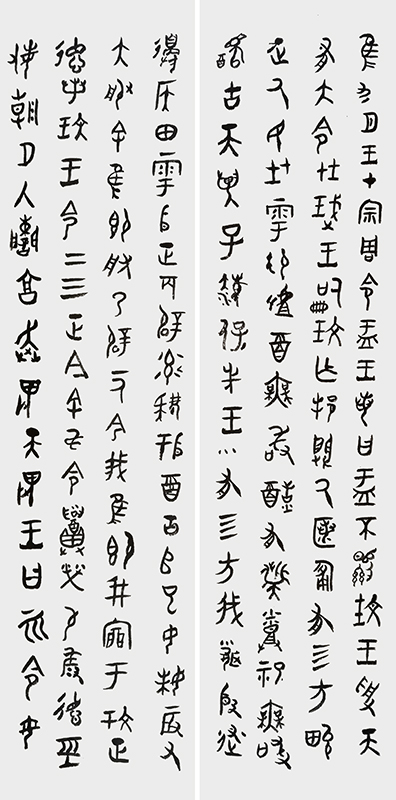 隹九月王才宗周令盂王若曰盂不顯玟王受天
有大令在珷王嗣玟乍邦闢氒匿匍有四方畯
正氒民在雩御事酉無敢酖有髭烝祀無敢
醻古天異子灋保先王有四方我聞殷述
邊侯田雩殷正百辟率肄酉古喪師巳女妹辰又
大服余隹即朕乃辟一令我隹即井廩于玟正
德若玟王令二三正今余令召榮敬德巠
敏朝夕入讕享奔走畏天畏王曰令女